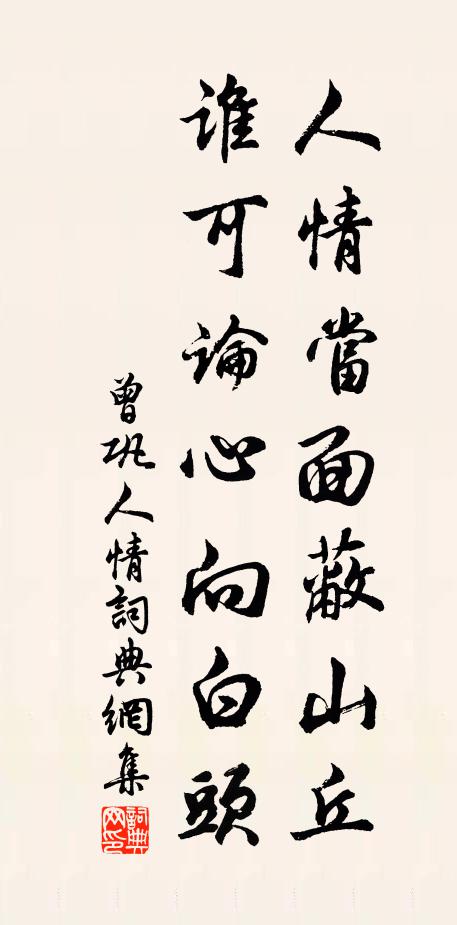 人情當面蔽山丘
誰可論心向白頭
曾巩人情詞典網集
詞典網印